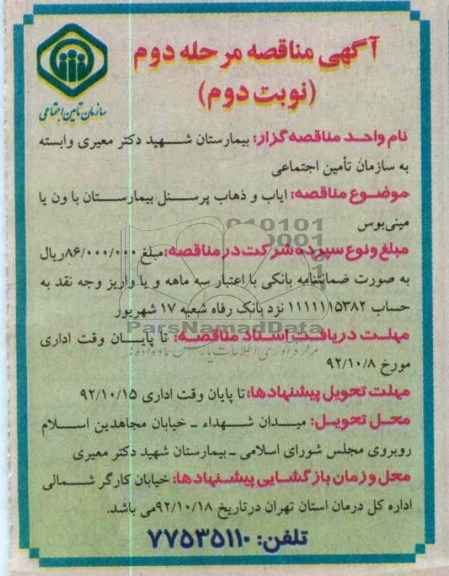 آگهی مناقصه مرحله دوم
(نوبت دوم)
سازمان تأمین اجتماعی
نام واحد مناقصه گزار: بیمارستان شهید دکتر معیری وابسته
به سازمان تأمین اجتماعی
موضوع مناقصه: ایاب و ذهاب پرسنل بیمارستان با ون یا
مینی‌بوس
مبلغ و نوع سپرده شرکت در مناقصه: مبلغ ۸۶/۰۰۰/۰۰۰ ریال
به صورت ضمانتنامه بانکی با اعتبار سه ماهه و یا واریز وجه نقد به
حساب ۱۱۱۱۱۱۵۳۸۲ نزد بانک رفاه شعبه ۱۷ شهریور
ParsNamadData
مهلت دریافت اسناد مناقصه: تا پایان وقت اداری
مورخ ۹۲/۱۰/۸
مهلت تحویل پیشنهادها: تا پایان وقت اداری ۹۲/۱۰/۱۵
محل تحویل: میدان شهداء ـ خیابان مجاهدین اسلام
روبروی مجلس شورای اسلامی ـ بیمارستان شهید دکتر معیری
محل و زمان بازگشایی پیشنهادها: خیابان کارگر شمالی
اداره کل درمان استان تهران درتاریخ ۹۲/۱۰/۱۸ می باشد.
تلفن: ۷۷۵۳۵۱۱۰